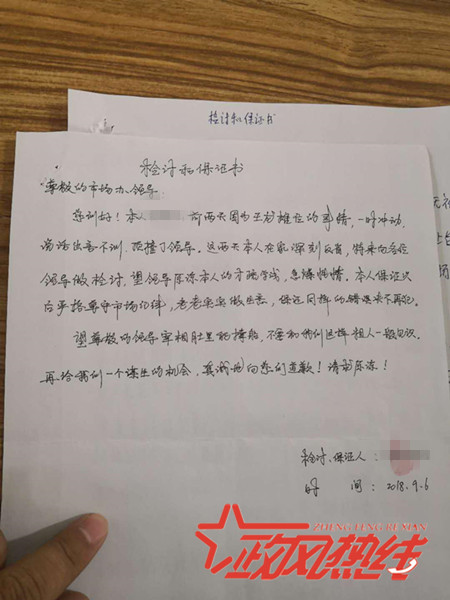 检讨和保证书
检讨和保证书
尊敬的市场办领导:
您们好!本人 前两天因为王龙摊位的事情,一时冲动,
说话出言不训,顶撞了领导。这两天本人在家深刻反省,特来向各位
领导做检讨,望领导原谅本人的才疏学浅,急燥性情。本人保证以
后严格尊守市场纪律,老老实实做生意,保证同样的错误决不再犯。
望尊敬的领导宰相肚里能撑船,不要和我们这样粗人一般见识。
再给我们一个谋生的机会,真诚地向您们道歉!请求原谅!
检讨、保证人:
时 间:2018.9.6
ZHENG FENG RE XIAN
政风热线